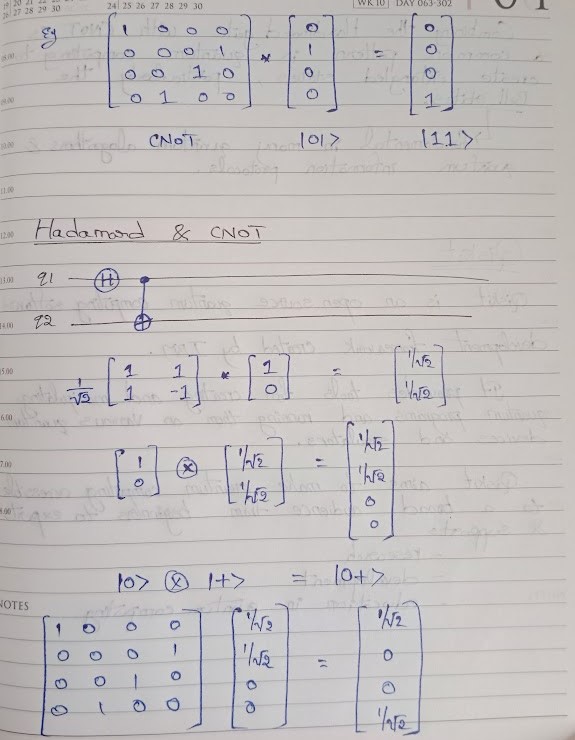 24 25 26 27 28 29 30
WK 10 DAY 063-302
27 28 29 30
Eg [1 0 0 0; 0 0 0 1; 0 0 1 0; 0 1 0 0] * [0; 1; 0; 0] = [0; 0; 0; 1]
CNOT |01> |11>
Hadamard & CNOT
q1 H
q2
1/√2 [1 1; 1 -1] * [1; 0] = [1/√2; 1/√2]
[1; 0] ⊗ [1/√2; 1/√2] = [1/√2; 1/√2; 0; 0]
|0> ⊗ |+> = |0+>
NOTES
[1 0 0 0; 0 0 0 1; 0 0 1 0; 0 1 0 0] [1/√2; 1/√2; 0; 0] = [1/√2; 0; 0; 1/√2]